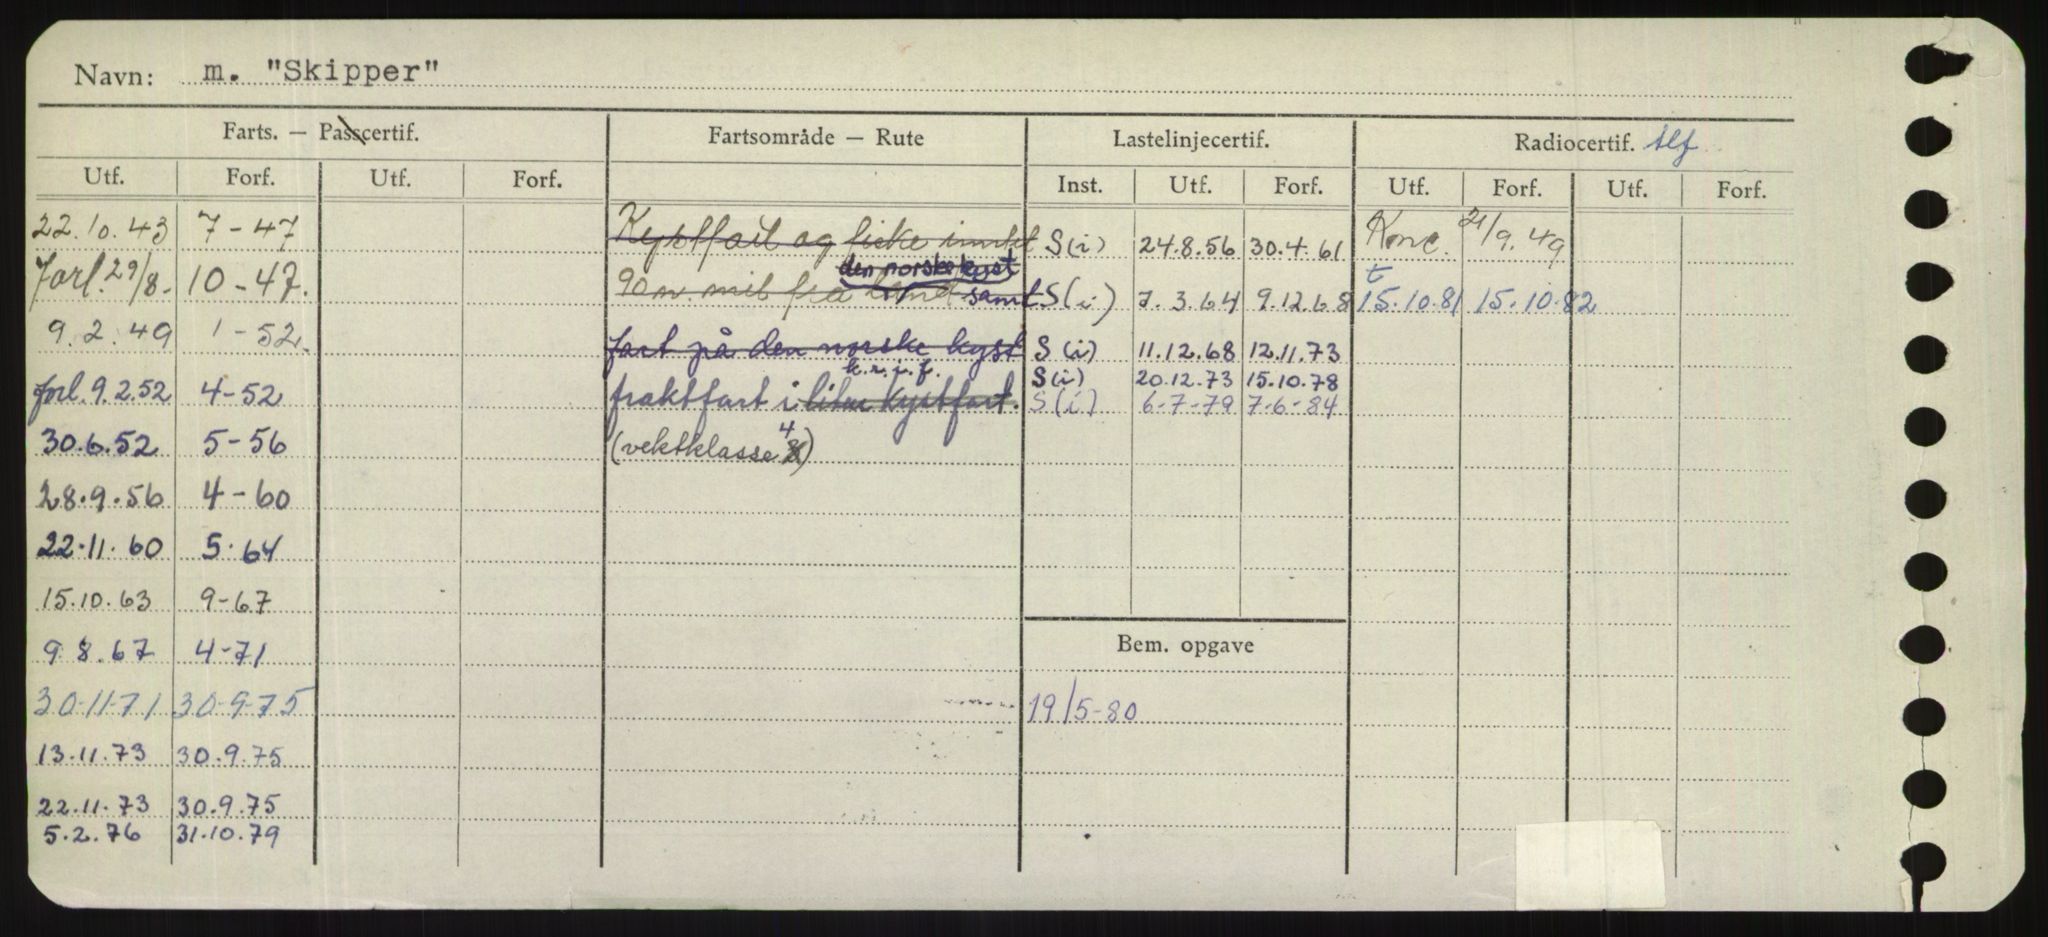 Navn: m. "Skipper"
Farts. — Passcertif. Fartsområde — Rute Lastelinjecertif. Radiocertif. tlf
Utf. Forf. Utf. Forf. Inst. Utf. Forf. Utf. Forf. Utf. Forf.
22.10.43 7-47 Kystfart og fiske inntil S(i) 24.8.56 30.4.61 Konc. 21/9.49
den norske kyst t
forl. 29/8. 10-47. 90 n. mil fra land samt S(i) 7.3.64 9.12.68 15.10.81 15.10.82
9.2.49 1-52. fart på den norske kyst S(i) 11.12.68 12.11.73
k.r.i.f. S(i) 20.12.73 15.10.78
forl. 9.2.52 4-52 fraktfart i liten kystfart. S(i) 6-7-79 7-6-84
30.6.52 5-56 (vektklasse 4)
28.9.56 4-60
22.11.60 5.64
15.10.63 9-67
9.8.67 4-71 Bem. opgave
30-11-71 30-9-75 19/5-80
13.11.73 30.9.75
22.11.73 30.9.75
5.2.76 31.10.79